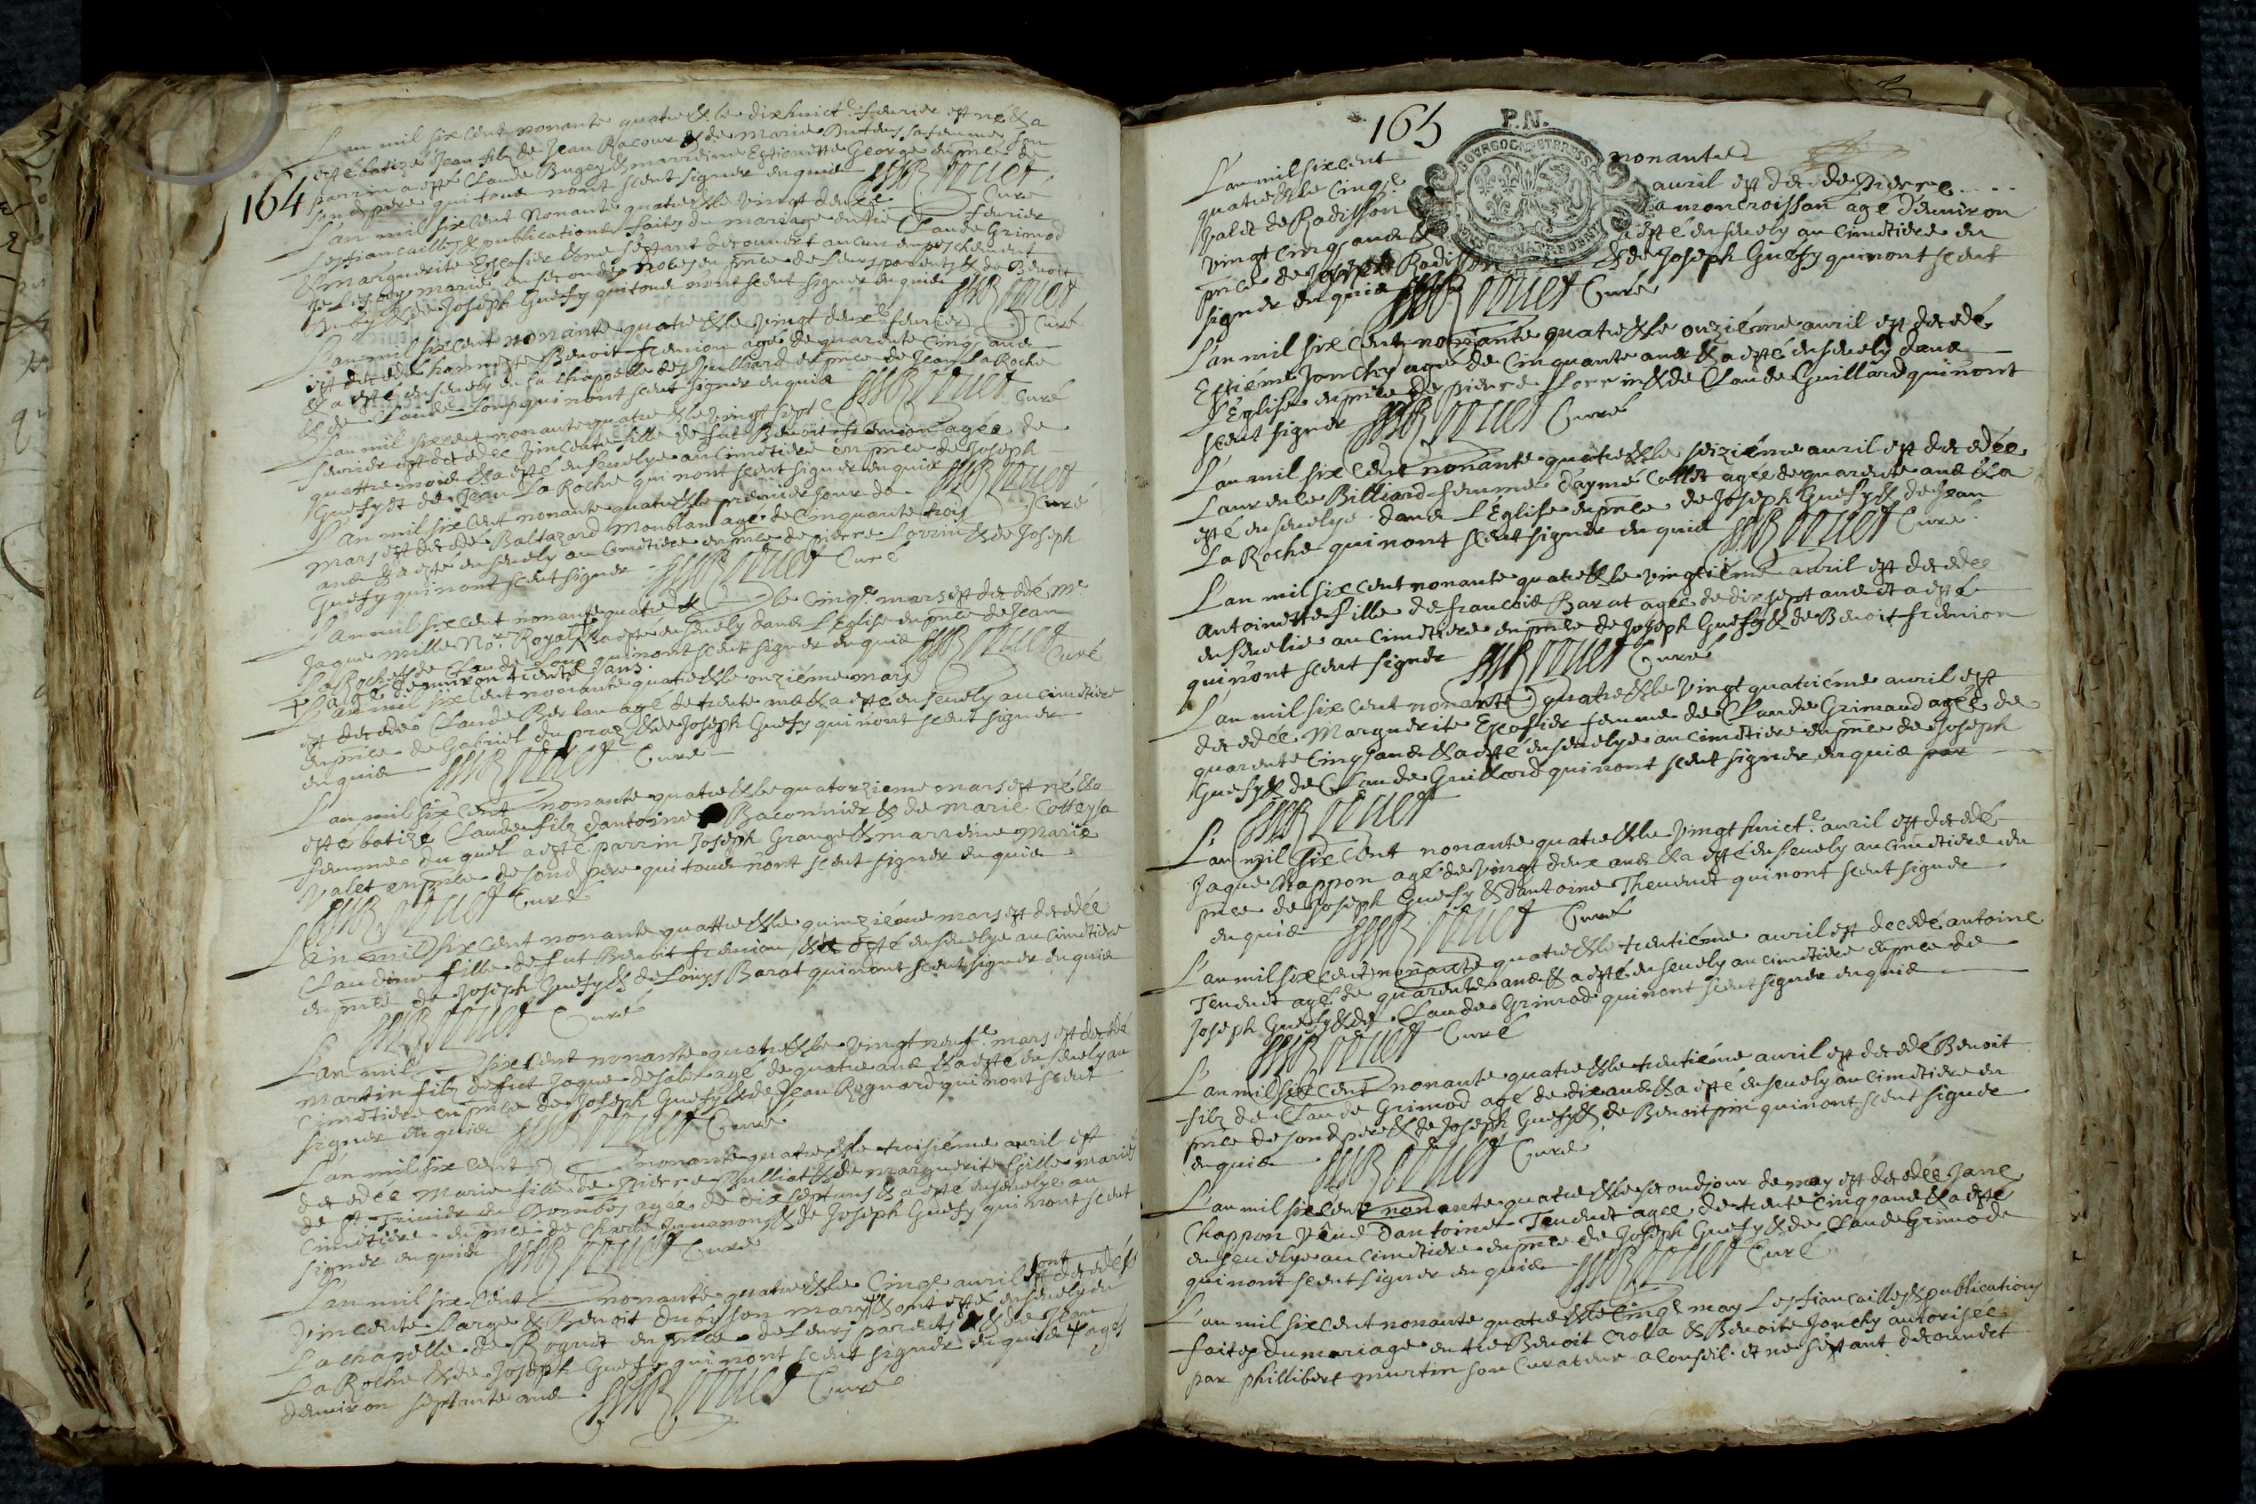 164
L'an mil six cent nonante quatre & le dixhuict.e feurier est né & a
esté batizé Jean filz de Jean Racour & de Marie sa femme son
parrin a esté Claude Bugey & marreine Estiennette George en pnce de
son d pere qui tous n'ont sceut signer enquis Curé
L'an mil six cent nonante quatre & le vingt deux.e feurier
les fiancailles & publications faites du mariage entre Claude Grimod
& Marguerite Escofier & ne s'estant decouuert aucun empeschement
je les ay mariés en secondes noces en pnce de leurs parents & de Benoit
& de Joseph Guefy qui tous n'ont sceut signer enquis Curé
L'an mil six cent nonante quatre & le vingt deux.e feurier
est decedé honneste Benoit frenion agé de quarente cinq ans
& a esté enseuely en sa chappelle de en pnce de Jean La Roche
& de Claude Loup qui n'ont sceut signer enquis Curé
L'an mil six cent nonante quatre & le vingt sept.e
feurier est decedée Vincente fille de fut Benoit frenion agée de
quattre mois & a esté enseuelye au cimetiere en pnce de Joseph
Guefy et de Jean La Roche qui n'ont sceut signer enquis Curé
L'an mil six cent nonante quatre & le premier jour de
mars est decedé Baltazard Monblan agé de cinquante trois
ans & a esté enseuely au cimetiere en pnce de Pierre Lorrin & de Joseph
Guefy qui n'ont sceut signer Curé
L'an mil six cent nonante quatre & le cinq.e mars est decedé M.e
Jaque Mille No.re Royal & a esté enseuely dans L'Eglise en pnce de Jean
La Roche & de Claude Loup qui n'ont sceut signer enquis Curé
+ agé denuiron trente ans.
L'an mil six cent nonante quatre & le onziéme mars
est decedé Claude Berlan agé de trente ans & a esté enseuely au cimetiere
en pnce de Gabriel du praz & de Joseph Guefy qui n'ont sceut signer
enquis Curé
L'an mil six cent nonante quatre & le quatorzieme mars est né & a
esté batizé Claude filz d'antoine Baconnier & de Marie Cottey sa
femme du quel a esté parrin Joseph Grange & marreine Marie
Valet en pnce de sond pere qui tous n'ont sceut signer enquis
Curé
L'an mil six cent nonante quattre & le quinziéme mars est decedée
Claudine fille de fut Benoit frenion & a esté enseuelye au cimetiere
en pnce de Joseph Guefy & de Louys Barat qui n'ont sceut signer enquis
Curé
L'an mil six cent nonante quatre & le vingt neuf.e mars est decedé
Martin filz de fut Jaque agé de quatre ans & a esté enseuely au
cimetiere en pnce de Joseph Guefy & de Jean Regnard qui n'ont sceut
signer enquis Curé
L'an mil six cent nonante quatre & le troisiéme auril est
decedée Marie fille de Pierre & de Marguerite fille mariés
de S.t Triuier en Dombes agée de dix sept ans & a esté enseuelye au
cimetiere en pnce de Charle & de Joseph Guefy qui n'ont sceut
signer enquis Curé
L'an mil six cent nonante quatre & le cinq.e auril sont decedés
Vincente Large & Benoit dubois son mary & ont esté enseuely en
La chapelle de en pnce de leurs parents & de Jean
La Roche & de Joseph Guefy qui n'ont sceut signer enquis + agés
denuiron septante ans Curé
165
P.N.
L'an mil six cent nonante
quatre & le cinq.e auril est decedé Pierre
valet de Radisson a moncroissan agé d'enuiron
vingt cinq ans & a esté enseuely au cimetiere en
pnce de Joseph Radisson & de Joseph Guefy qui n'ont sceut
signer enquis Curé
L'an mil six cent nonante quatre & le onziéme auril est decedé
Estiéne Jonchy agé de cinquante ans & a esté enseuely dans
L'Eglise en pnce de Pierre Lorrin & de Claude Guillard qui n'ont
sceut signer Curé
L'an mil six cent nonante quatre & le seiziéme auril est decedée
Laurence Billiard femme d'aymé Collet agée de quarente ans & a
esté enseuelye dans L'Eglise en pnce de Joseph Guefy & de Jean
La Roche qui n'ont sceut signer enquis Curé
L'an mil six cent nonante quatre & le vingtiéme auril est decedée
Antoinette fille de francois Barat agée de dix sept ans et a esté
enseuelie au cimetiere en pnce de Joseph Guefy & de Benoit frenion
qui n'ont sceut signer Curé
L'an mil six cent nonante quatre & le vingt quatriéme auril est
decedée Marguerite Escofier femme de Claude Grimaud agée de
quarente cinq ans & a esté enseuelye au cimetiere en pnce de Joseph
Guefy & de Claude Guillard qui n'ont sceut signer enquis par
L'an mil six cent nonante quatre & le vingt huict.e auril est decedé
Jaque Chappon agé de vingt deux ans & a esté enseuely au cimetiere en
pnce de Joseph Guefy & d'antoine Theuenet qui n'ont sceut signer
enquis Curé
L'an mil six cent nonante quatre & le trentiéme auril est decedé antoine
Teuenet agé de quarente ans & a esté enseuely au cimetiere en pnce de
Joseph Guefy & de Claude Grimod qui n'ont sceut signer enquis
Curé
L'an mil six cent nonante quatre & le trentiéme auril est decedé Benoit
filz de Claude Grimod agé de dix ans & a esté enseuely au cimetiere en
pnce de sond pere & de Joseph Guefy & de Benoit pin qui n'ont sceut signer
enquis Curé
L'an mil six cent nonante quatre & le second jour de may est decedée Jane
Chappon veuue d'antoine Teuenet agée de trente cinq ans & a esté
enseuelye au cimetiere en pnce de Joseph Guefy & de Claude Grimod
qui n'ont sceut signer enquis Curé
L'an mil six cent nonante quatre & le cinq.e may Les fiancailles & publications
faites du mariage entre Benoit Crolla & Benoite Jonchy autorisée
par Phillibert Martin son curateur a conseil et ne s'estant decouuert